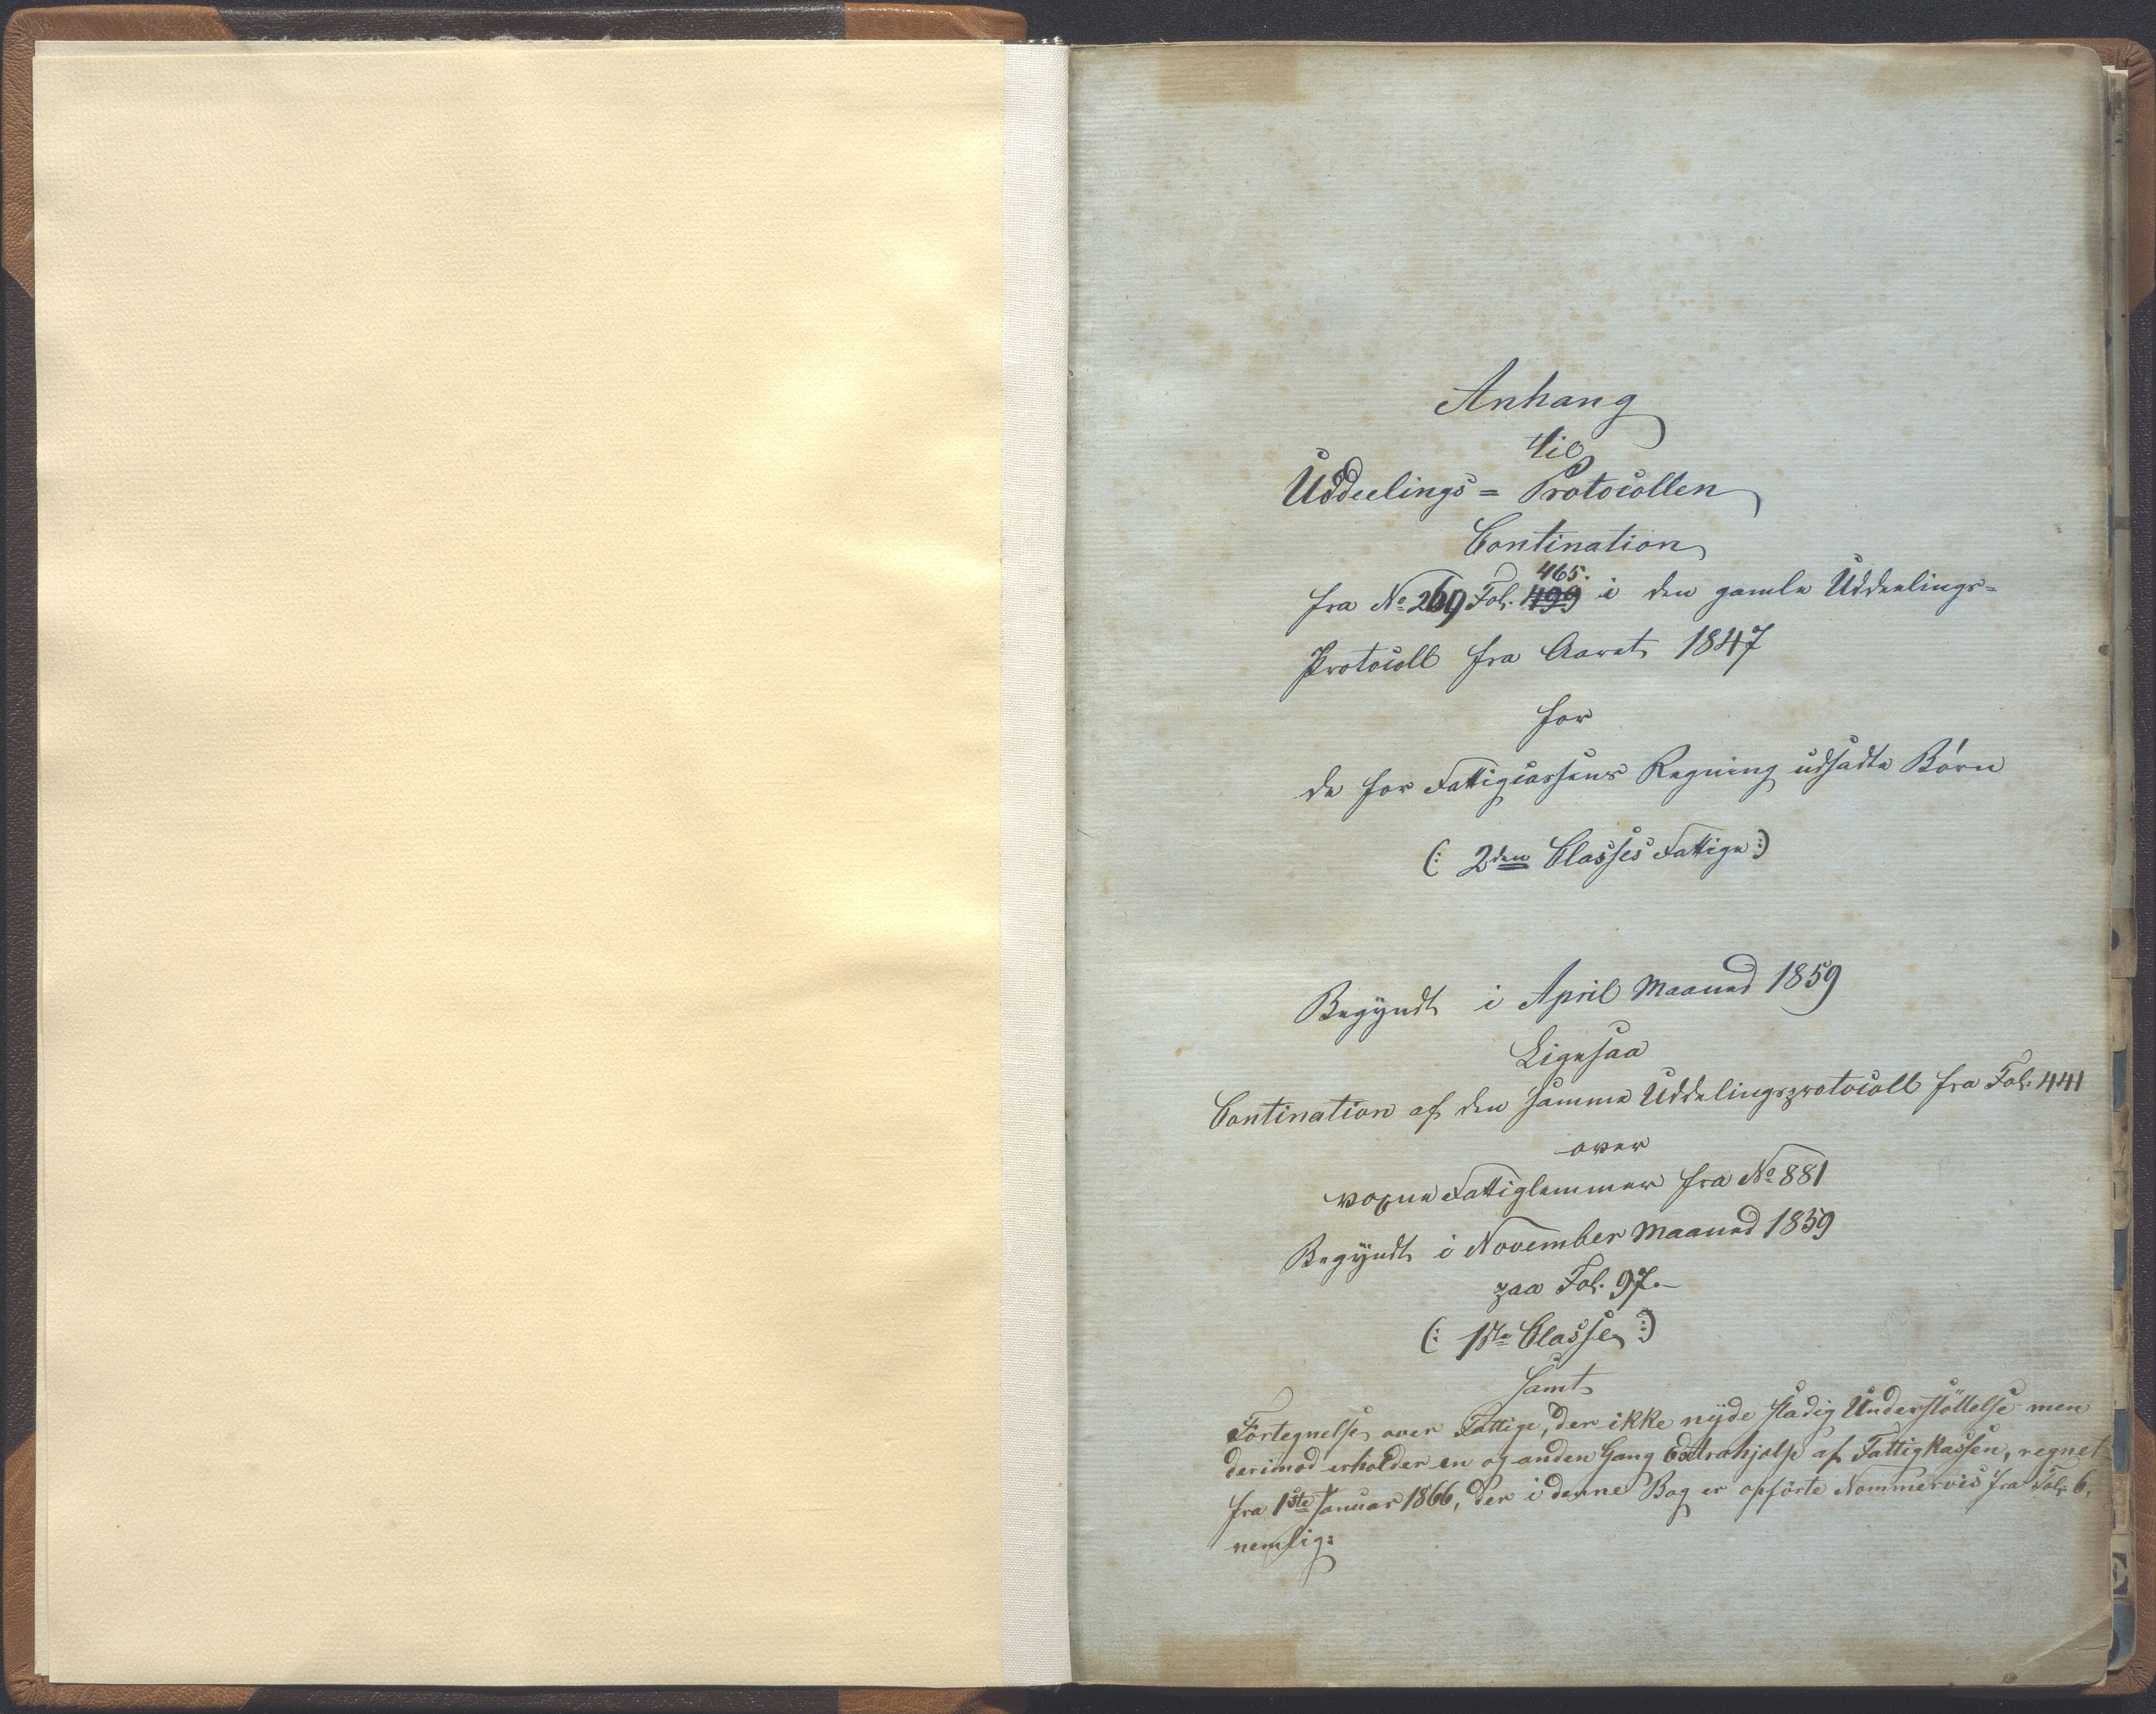 Anhang
til
Uddeelings= Protocollen
Contination
465.
fra No 269 Fol. 499 i den gamle Uddeelings=
Protocoll fra Aaret 1847
for
de for Fattigcassens Regning udsadte Børn
(: 2den Classes Fattige :)
Begyndt i April Maaned 1859
Ligesaa
Contination af den samme Uddelingsprotocoll fra Fol. 441
over
voxne Fattiglemmer fra No 881
Begyndt i November Maaned 1859
paa Fol. 97.-
(: 1ste Classe :)
samt
Fortegnelse over Fattige, der ikke nyde stadig Understöttelse men
derimod erholder en og anden Gang Extrahjelp af Fattigkassen, regnet
fra 1ste Januar 1866, der i denne Bog er opförte Nommervis fra Fol. 6,
nemlig: